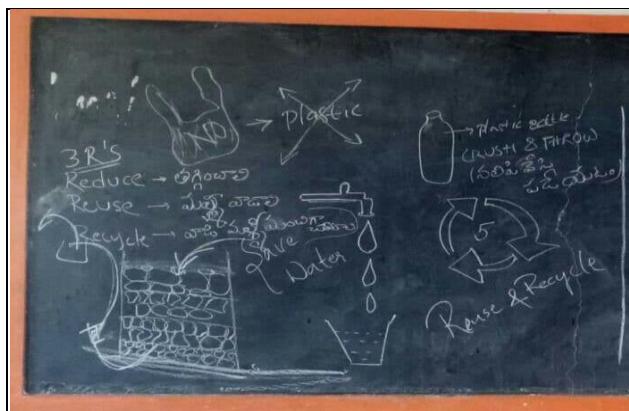 NO
plastic
3 R'S
Reduce → తగ్గించాలి
Reuse → మళ్లీ వాడాలి
Recycle →
Save
Water
→ Plastic Bottle
(CRUSH & THROW)
5
Reuse & Recycle